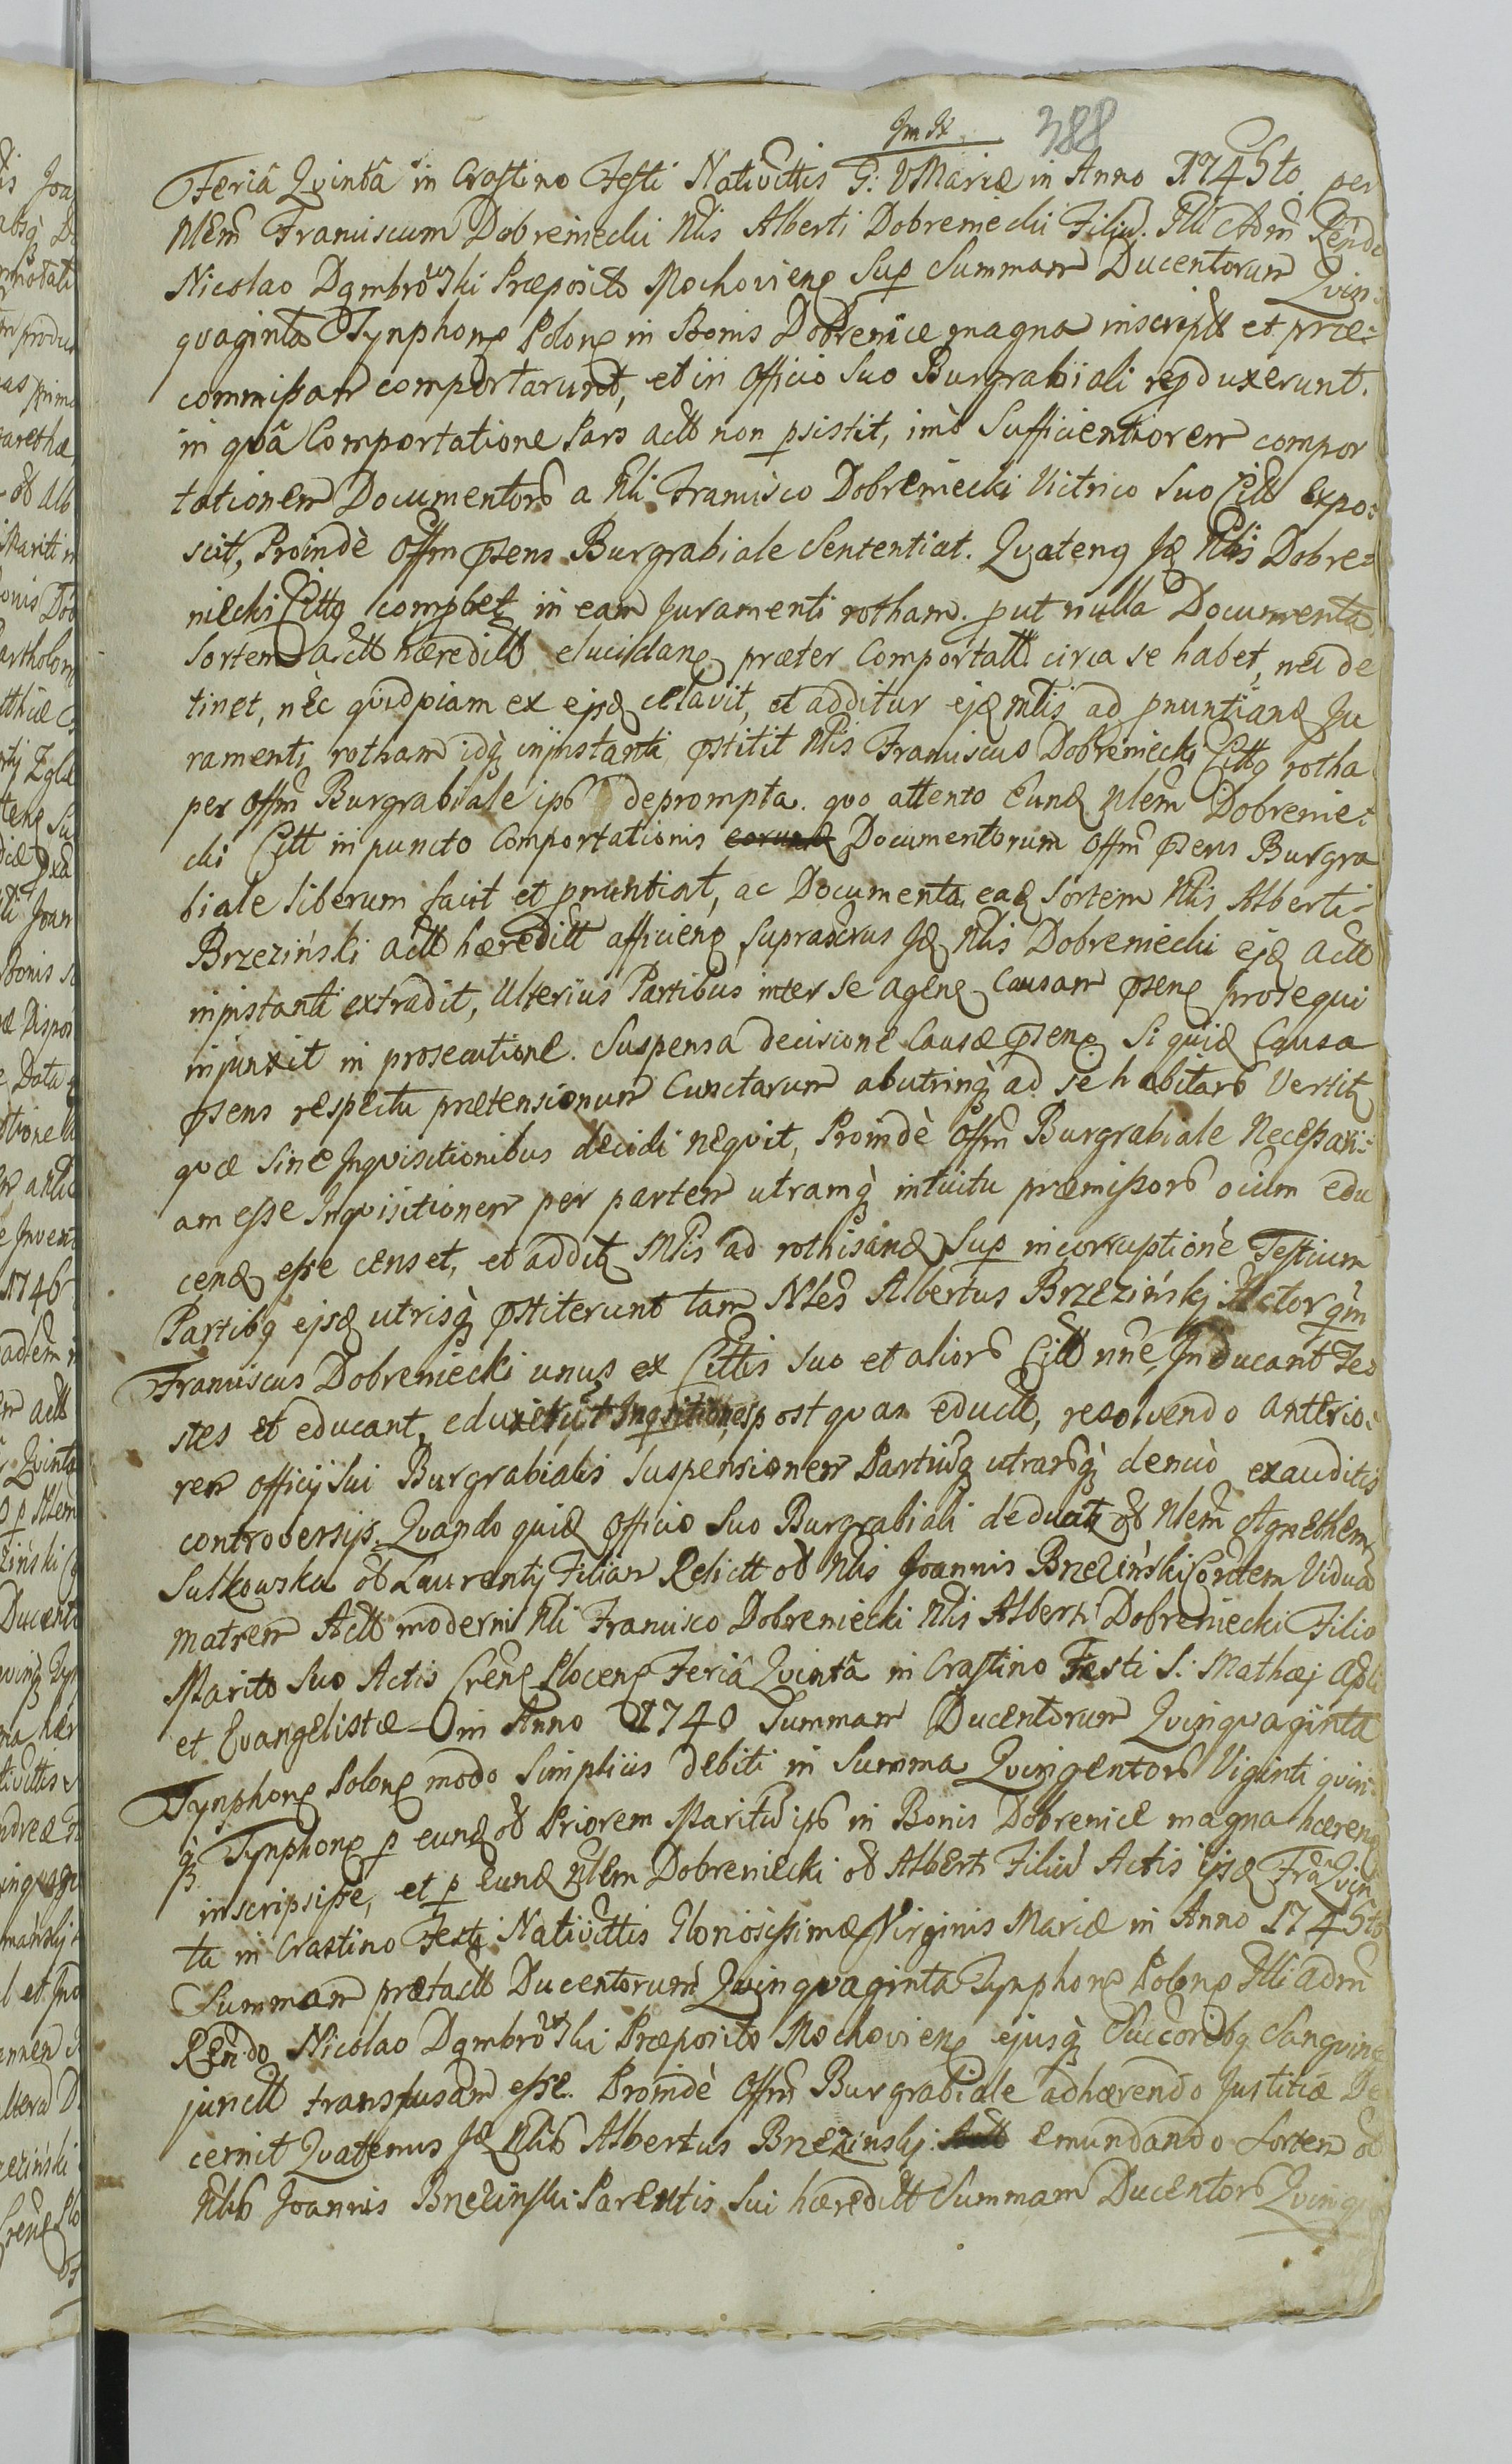 388
Feriâ Qvintâ in Crastino Festi Nativittis G: V Mariæ in Anno 1745to per
Nlem Franciscum Dobreniecki Nlis Alberti Dobreniecki Filiu. Illi Adm Rendo
Nicolao Dąmbrowski Præposito Mochoviens Sup Summam Ducentorum Qvin:
qvaginta Tynphons Polons in Bonis Dobrenice magna inscript et præ:
commissam comportarunt, et in Officio Suo Burgrabiali reproduxerunt.
in qvâ Comportatione Pars actt non psistit, imò Sufficientiorem compor
tationem Documentor a Nli Francisco Dobreniecki Victrico Suo Citt expo:
scit, Proindè Offm psens Burgrabiale Sententiat. Qvatenq Id Nlis Dobre:
niecki Cittq comprbet in eam Juramenti rotham. put nulla Documenta
Sortem actt hæreditt elucidans præter Comportatt circa se habet, nec de
tinet, nèc qvidpiam ex ejsd celavit, et additur ejd Mlis ad pnuntiand Ju
ramenti rotham idq in instanti pstitit Nlis Franciscus Dobreniecki Cittq rotha
per Offm Burgrabiale ips deprompta. qvo attento Eund Nlem Dobrenie:
cki Citt in puncto Comportationis eorund Documentorum Offm psens Burgra
biale liberum facit et pnuntiat, ac Documenta ead Sortem Nlis Alberti
Brzeziński actt hæreditt afficiens supradcrus Id Nlis Dobreniecki ejd actt
in instanti extradit, Ulterius Partibus inter se agens Causam psens proseqvi
injunxit in prosecutione. Suspensa decisione Causæ psens. Si qvid Causa
psens respectu prætensionum Cunctarum ab utrinq ad se habitars vertit
qvæ sine Inqvisitionibus decidi neqvit, Proindè Offm Burgrabiale Necessari:
am esse Inqvisitionem per partem utramq intuitu præmissors oium edu
cend esse censet, et addit Mlis ad rothisand Sup incorruptione Testium
Partibq ejsd utrisq pstiterunt tam Nles Albertus Brzeziński Actor qm
Franciscus Dobreniecki unus ex Cittis suo et aliors Citt nne, Inducant Tes
stes et educant, eduxerut Inqsitiones post qvam eductt, resolvendo anterio:
rem officij sui Burgrabialis Suspensionem Partiuq utrarsq denuò exauditis
controversijs. Qvando qvid Officio Suo Burgrabiali deducit od Nlem Agnethem
Sutkowska od Laurentij Filiam Relictt od Nlis Joannis Brzeziński Consrtem Viduam
matrem Actt moderni Nli Francisco Dobreniecki Nlis Alberti Dobreniecki Filio
Marito suo Actis Crens Plocens Feriâ Qvintâ in Crastino Festi S: Mathæj Apli
et Evangelistæ in Anno 1740 Summam Ducentorum Qvinqvaginta
Tynphons Polons modo simplicis debiti in Summa Qvingentors Viginti qvin:
q Tynphons p eund od Priorem Maritu ips in Bonis Dobrenice magna hærens
inscripsisse, et p eund Nlem Dobreniecki od Alberti Filiu Actis ijsd Fria Qvin
ta in Crastino Festi Nativittis Gloriosissimæ Virginis Mariæ in Anno 1745to
Summam prætactt Ducentorum Qvinqvaginta Tynphons Polons Illi adm
Rendo Nicolao Dąmbrowski Præposito Mochoviens ejusq Succoribq Sangvine
junctt transfusam esse. Proindè Offm Burgrabiale adhærendo Justitiæ De
cernit Qvatenus Id Nlis Albertus Brzeziński Actt emundando Sortem od
Nlis Joannis Brzeziński Parentis Sui hæreditt Summam Ducentors Qvinqva